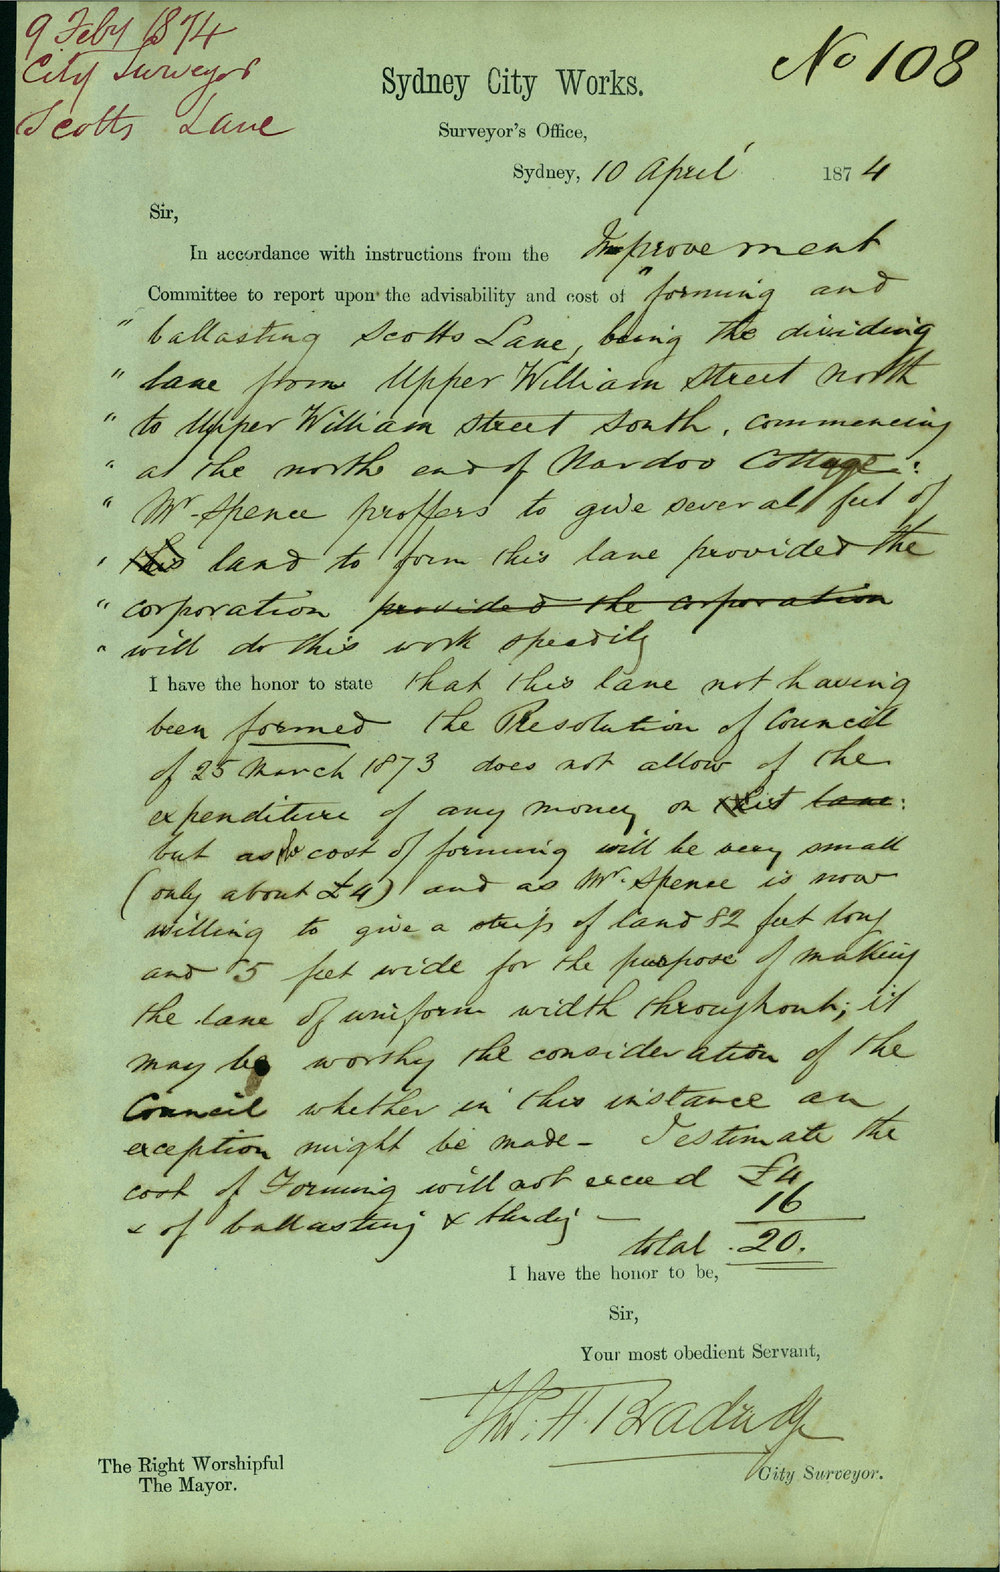 9 Feby 1874
City Surveyor
Scotts Lane
No 108
Sydney City Works.
Surveyor's Office,
Sydney, 10 April 1874
Sir,
In accordance with instructions from the Improvement
Committee to report upon the advisability and cost of "forming and
" ballasting Scotts Lane, being the dividing
" lane from Upper William Street North
" to Upper William Street South, commencing
" at the north end of Nardoo Cottage:
" Mr. Spence proffers to give several feet of
" this land to form this lane provided the
" corporation provided the corporation
" will do this work speedily
I have the honor to state that this lane not having
been formed the Resolution of Council
of 25 March 1873 does not allow of the
expenditure of any money on it lane:
but as the cost of forming will be very small
(only about £4) and as Mr. Spence is now
willing to give a strip of land 82 feet long
and 5 feet wide for the purpose of making
the lane of uniform width throughout; it
may be worthy the consideration of the
Council whether in this instance an
exception might be made - I estimate the
cost of Forming will not exceed £4
& of ballasting & blindg - 16
total 20.
I have the honor to be,
Sir,
Your most obedient Servant,
City Surveyor.
The Right Worshipful
The Mayor.